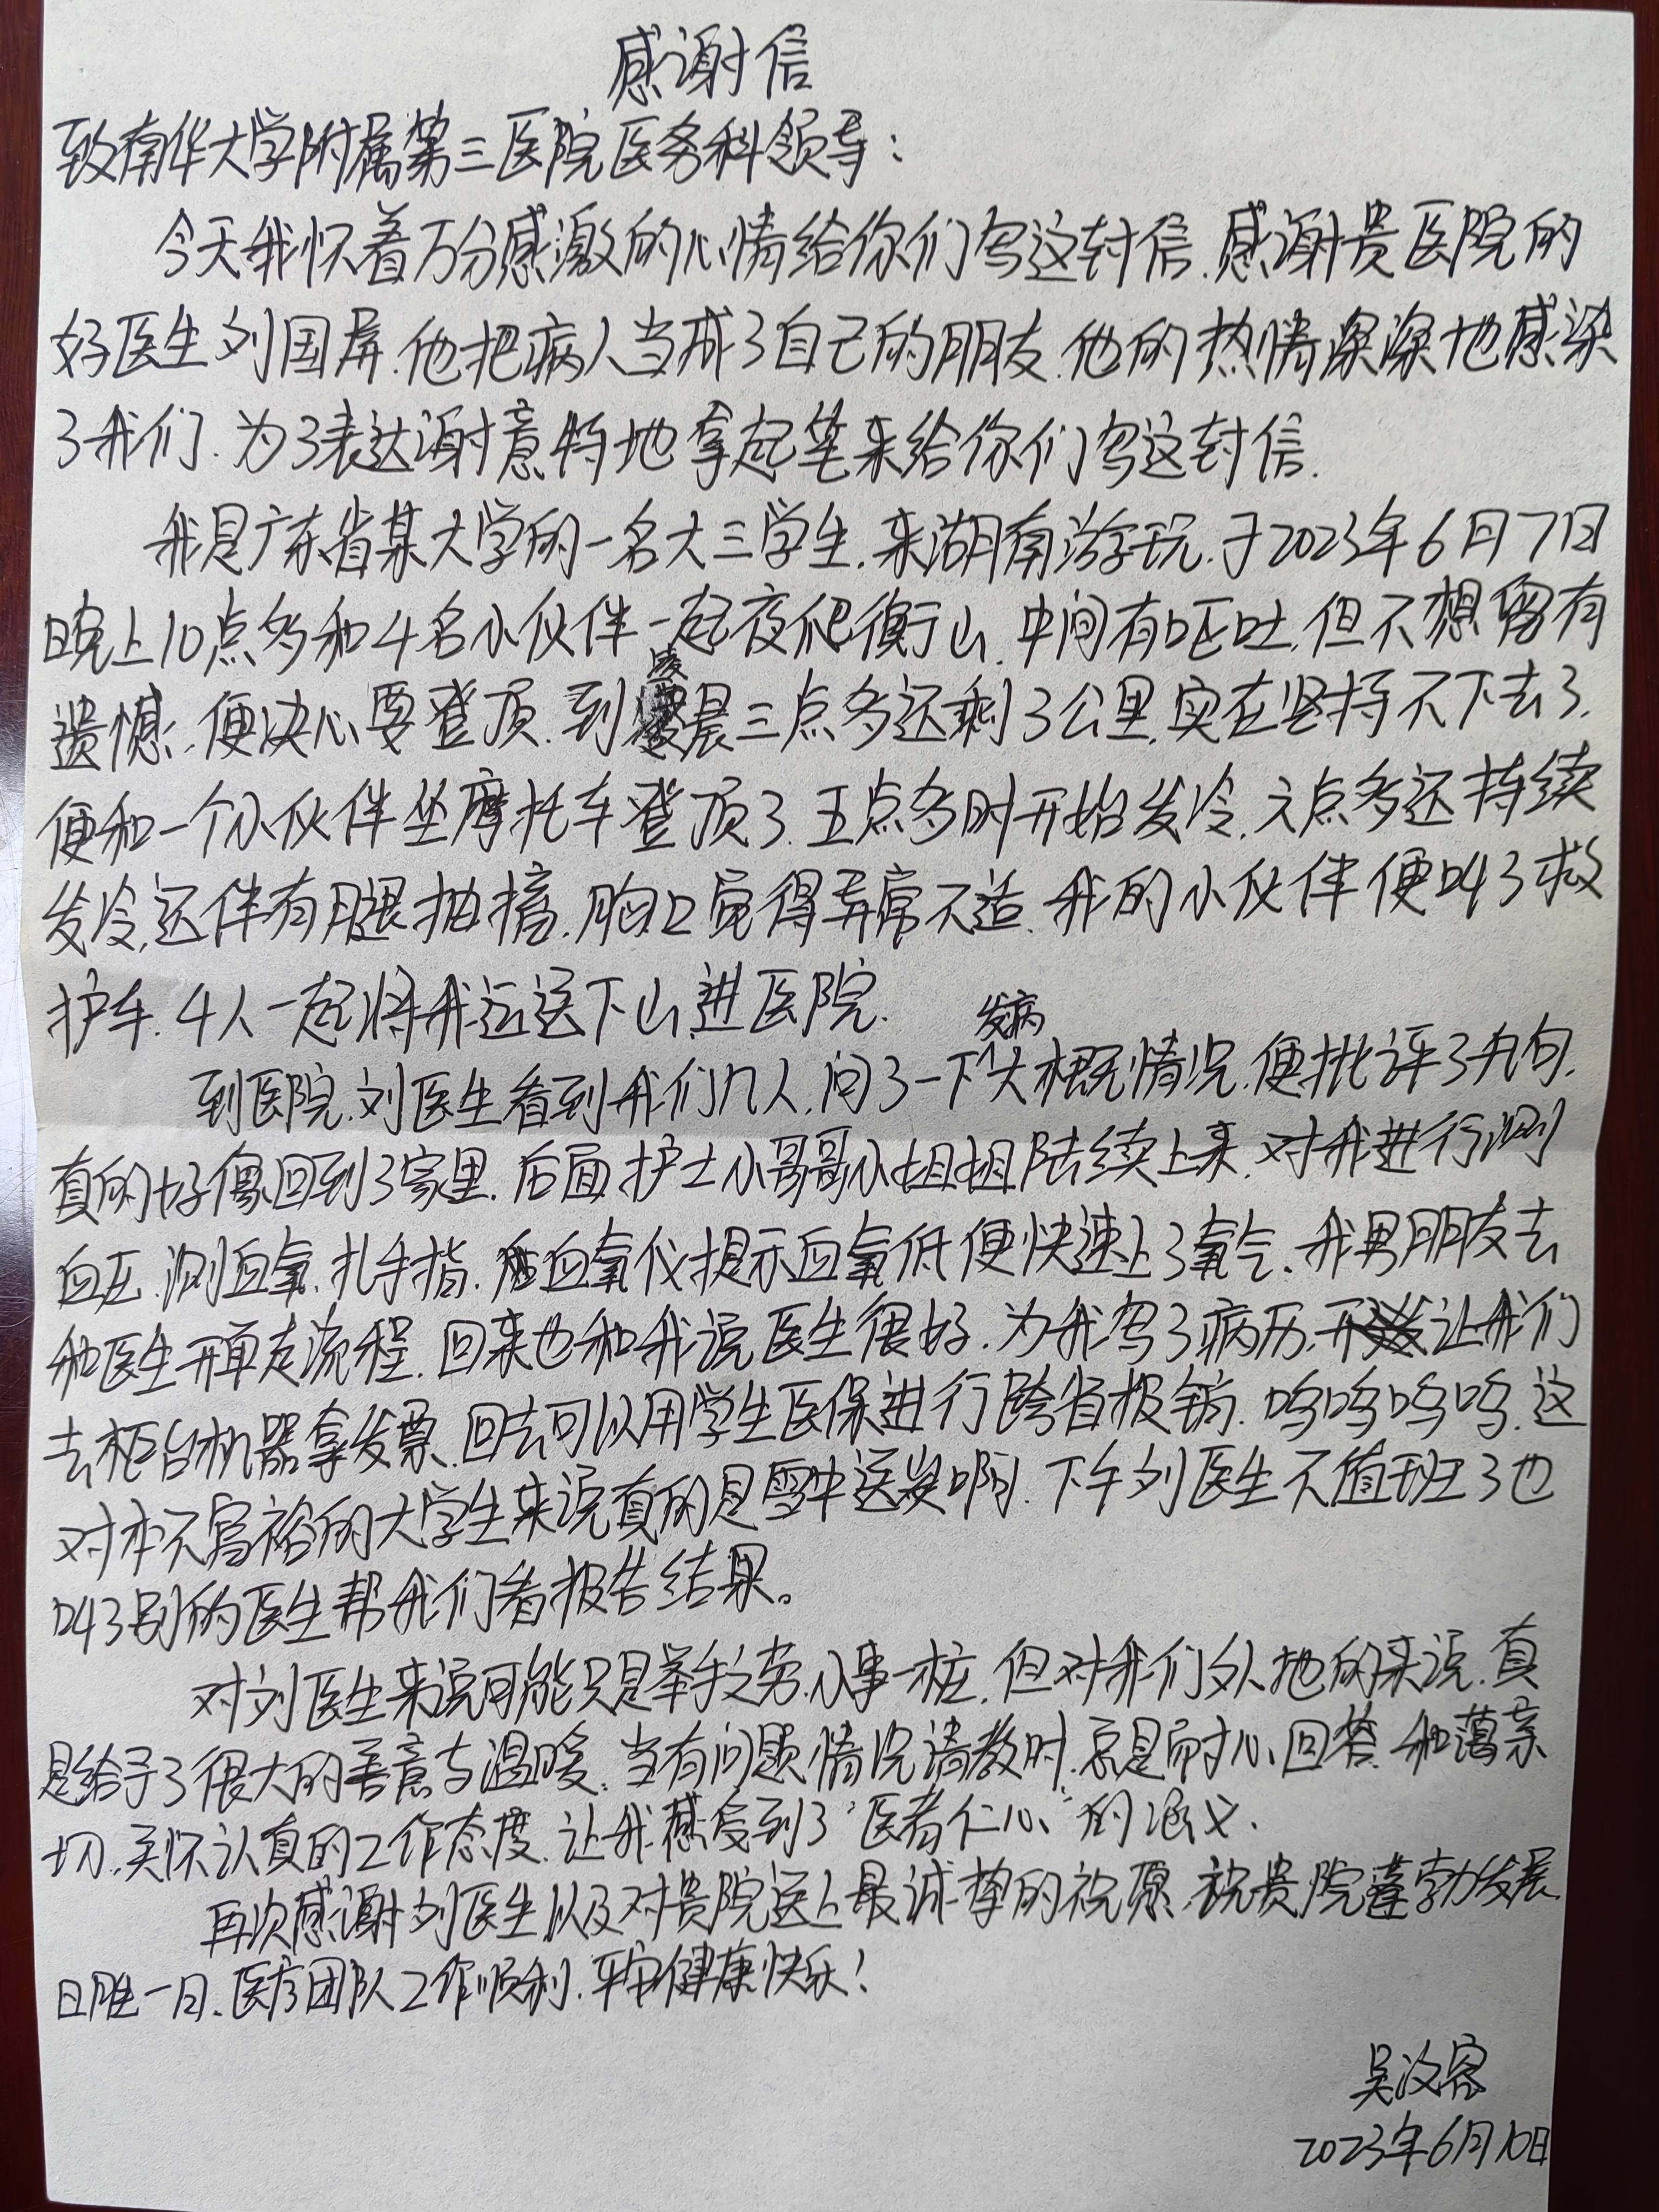 感谢信
致南华大学附属第三医院医务科领导：
今天我怀着万分感激的心情给你们写这封信.感谢贵医院的
好医生刘国屏.他把病人当成了自己的朋友.他的热情深深地感染
了我们.为了表达谢意特地拿起笔来给你们写这封信.
我是广东省某大学的一名大三学生.来湖南游玩.于2023年6月7日
晚上10点多和4名小伙伴一起夜爬衡山.中间有呕吐.但不想留有
遗憾.便决心要登顶.到凌晨三点多还剩3公里.实在坚持不下去了.
便和一个小伙伴坐摩托车登顶了.五点多时开始发冷.六点多还持续
发冷.还伴有腿抽搐.胸口觉得异常不适.我的小伙伴便叫了救
护车.4人一起将我运送下山进医院.
到医院.刘医生看到我们几人.问了一下发病大概情况.便批评了九句.
真的好像回到了家里.后面护士小哥哥小姐姐陆续上来.对我进行测
血压.测血氧.扎手指.血氧仪提示血氧低便快速上了氧气.我男朋友去
和医生开单走流程.回来也和我说医生很好.为我写了病历.让我们
去柜台机器拿发票.回去可以用学生医保进行跨省报销.呜呜呜呜.这
对本不富裕的大学生来说真的是雪中送炭啊.下午刘医生不值班了也
叫了别的医生帮我们看报告结果。
对刘医生来说可能只是举手之劳.小事一桩.但对我们外地的来说.真
是给予了很大的善意与温暖.当有问题情况请教时.总是耐心回答.和蔼亲
切.关怀认真的工作态度.让我感受到了“医者仁心”的涵义.
再次感谢刘医生以及对贵院送上最诚挚的祝愿.祝贵院蓬勃发展
日胜一日.医疗团队工作顺利.平安健康快乐！
吴汶容
2023年6月10日